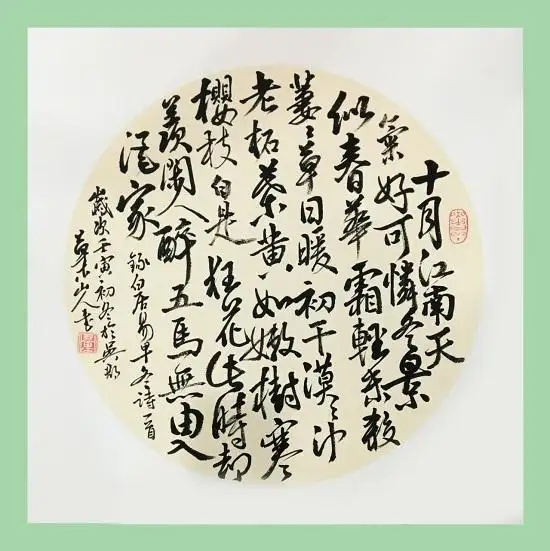 十月江南天
氣好可憐冬景
似春華霜輕未殺
萋〻草日暖初干漠〻沙
老柘葉黄如嫩樹寒
櫻枝白是狂花此時却
羨閑人醉五馬無由入
酒家
録白居易早冬詩一首
歲次壬寅初冬於吴郡
山人書